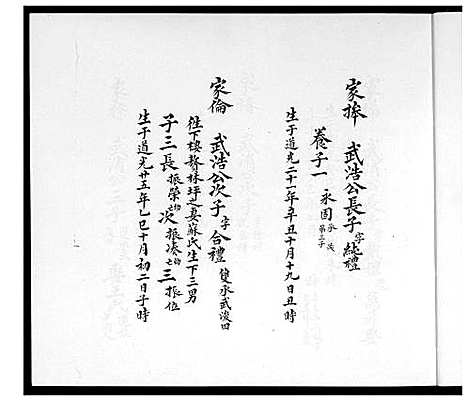 家捧 武浩公長子字純禮
養子一 永固承茂第三子
生于道光二十一年辛丑十月十九日丑時
家倫 武浩公次子字合禮 雙承武浚四
徃下樓贅林坪之妻蘇氏生下三男
子三長振榮 次振湊 三振位
生于道光廿五年乙巳十月初二日子時